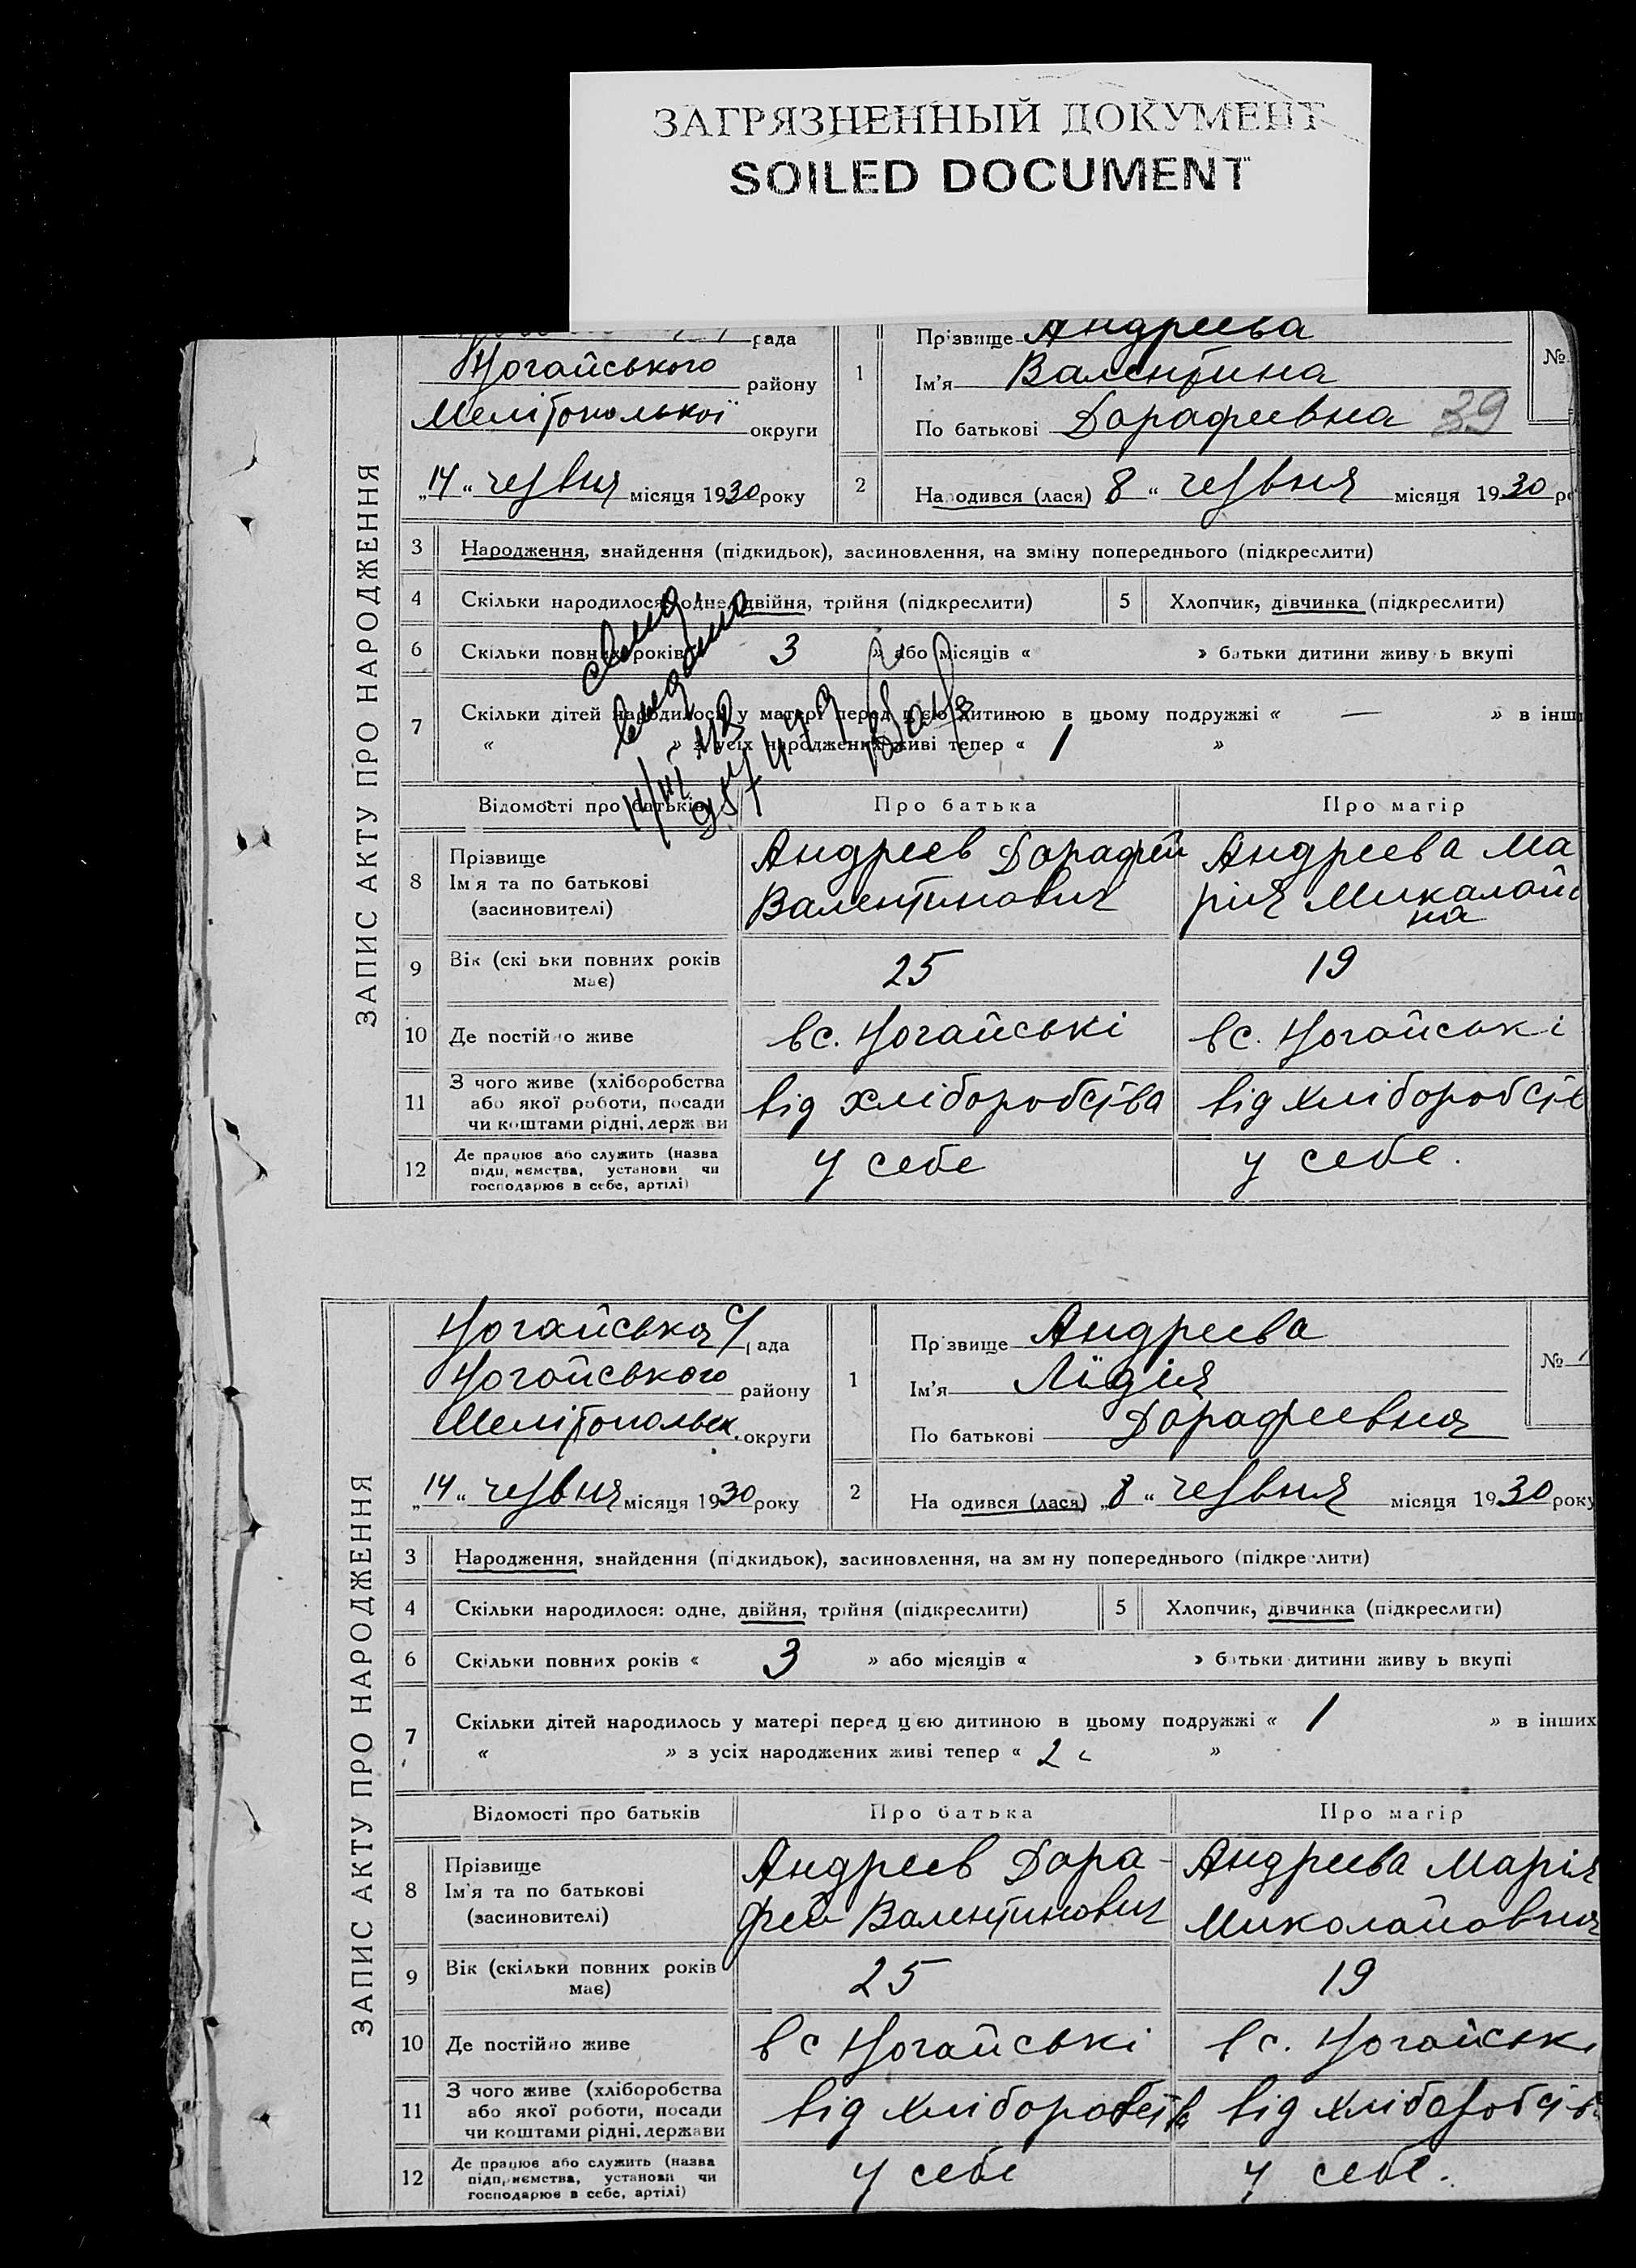 ЗАГРЯЗНЕННЫЙ ДОКУМЕНТ
SOILED DOCUMENT
ЗАПИС АКТУ ПРО НАРОДЖЕННЯ
рада
Ногайського району
Мелітопольської округи
„14“ червня місяця 1930 року
1
Прізвище Андреева
Ім'я Валентина
По батькові Дорафеевна 39
№
2
Народився (лася) 8 “ червня місяця 1930 ро
3 Народження, знайдення (підкидьок), засиновлення, на зміну попереднього (підкреслити)
4 Скільки народилося: одне, двійня, трійня (підкреслити) 5 Хлопчик, дівчинка (підкреслити)
6 Скільки повних років 3 » або місяців « » батьки дитини живуть вкупі
7 Скільки дітей народилось у матері перед цією дитиною в цьому подружжі « — » в інши
« » з усіх народжених живі тепер « 1 »
Відомості про батьків Про батька Про матір
8 Прізвище
Ім'я та по батькові
(засиновителі)
Андреев Дорафей
Валентинович
Андреева Ма
рія Миколаїв
на
9 Вік (скільки повних років
має)
25 19
10 Де постійно живе вс. Ногайські вс. Ногайські
11 З чого живе (хліборобства
або якої роботи, посади
чи коштами рідні, держави
від хліборобства від хліборобств
12 Де працює або служить (назва
підприємства, установи чи
господарює в себе, артілі)
у себе у себе.
ЗАПИС АКТУ ПРО НАРОДЖЕННЯ
Ногайська с/рада
Ногайського району
Мелітопольськ. округи
„14“ червня місяця 1930 року
1
Прізвище Андреева
Ім'я Лідія
По батькові Дорафеевна
№
2
Народився (лася) „8“ червня місяця 1930 року
3 Народження, знайдення (підкидьок), засиновлення, на зміну попереднього (підкреслити)
4 Скільки народилося: одне, двійня, трійня (підкреслити) 5 Хлопчик, дівчинка (підкреслити)
6 Скільки повних років « 3 » або місяців « » батьки дитини живуть вкупі
7 Скільки дітей народилось у матері перед цією дитиною в цьому подружжі « 1 » в інших
« » з усіх народжених живі тепер « 2 »
Відомості про батьків Про батька Про матір
8 Прізвище
Ім'я та по батькові
(засиновителі)
Андреев Дора-
фей Валентинович
Андреева Марія
Миколайовна
9 Вік (скільки повних років
має)
25 19
10 Де постійно живе в с Ногайські в с. Ногайські
11 З чого живе (хліборобства
або якої роботи, посади
чи коштами рідні, держави
від хліборобств від хліборобства
12 Де працює або служить (назва
підприємства, установи чи
господарює в себе, артілі)
у себе у себе.